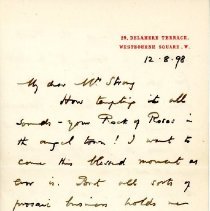 29, DELAMERE TERRACE,
WESTBOURNE SQUARE. W.
12.8.98
My dear Mr Strong
How tempting it all
sounds - your Rock of Roses in
the angel town! I want to
come this blessed moment as
ever is. But all sorts of
prosaic business holds me